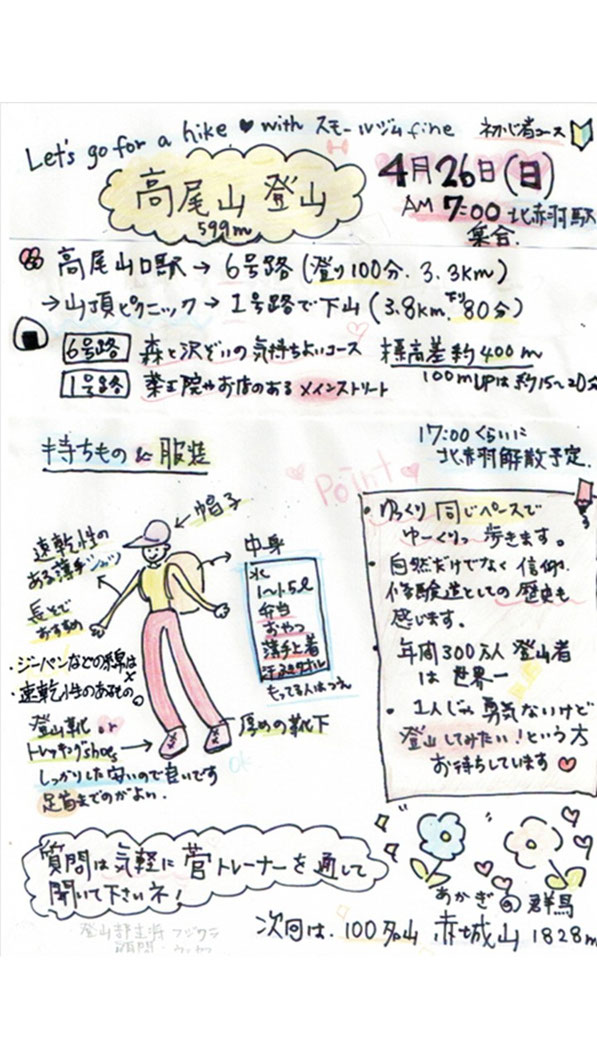 Let's go for a hike ♥ with スモールジム fine 初心者コース
高尾山 登山
599m
4月26日(日)
AM 7:00 北赤羽駅
集合.
高尾山口駅→6号路(登り100分.3.3km)
→山頂ピクニック→1号路で下山(3.8km.下り80分)
6号路 森と沢ぞいの気持ちよいコース 標高差約400m
1号路 薬王院やお店のある メインストリート 100mUPは約15〜20分
17:00くらいに
北赤羽解散予定.
持ちもの & 服装
Point
帽子
速乾性の
ある薄手シャツ
長そで
おすすめ
・ジーパンなどの綿は×
・速乾性のあるもの。
登山靴 or
トレッキングshoes
しっかりした安いので良いです
足首までのがよい.
厚めの靴下
ok
中身
水
1〜1.5ℓ
弁当
おやつ
薄手上着
汗ふきタオル
もってる人はつえ
・ゆっくり同じペースで
ゆーくりっ歩きます。
・自然だけでなく信仰.
修験道としての歴史も
感じます。
・年間300万人 登山者
は世界一
・1人じゃ勇気ないけど
登山してみたい!という方
お待ちしています♥
質問は気軽に菅トレーナーを通して
聞いて下さいネ!
あかぎ@群馬
次回は.100名山 赤城山 1828m
登山部主将 フジクラ
顧問